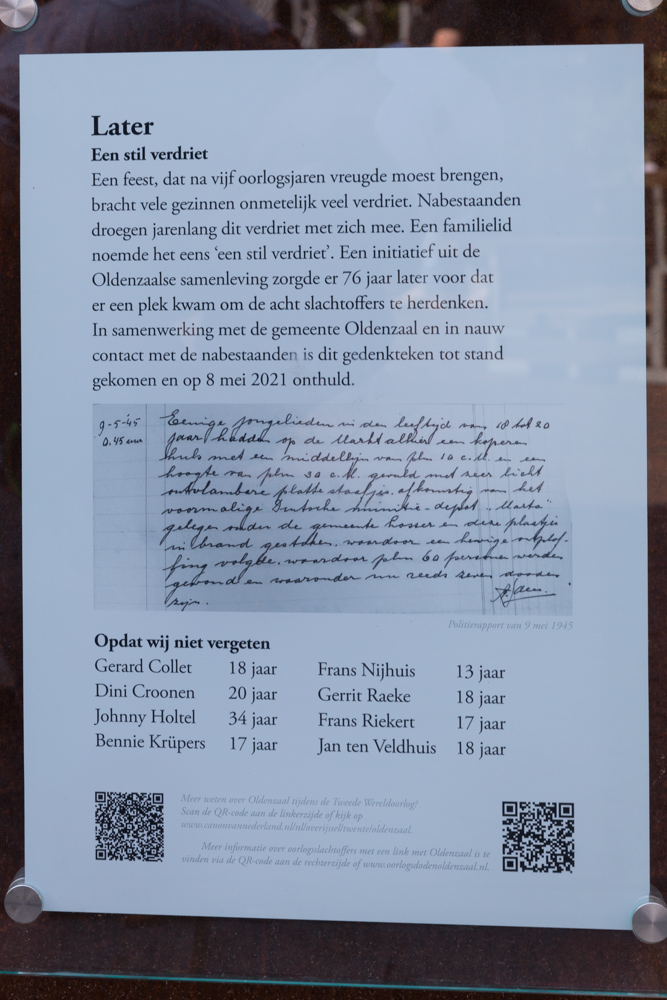 Later
Een stil verdriet
Een feest, dat na vijf oorlogsjaren vreugde moest brengen,
bracht vele gezinnen onmetelijk veel verdriet. Nabestaanden
droegen jarenlang dit verdriet met zich mee. Een familielid
noemde het eens ‘een stil verdriet’. Een initiatief uit de
Oldenzaalse samenleving zorgde er 76 jaar later voor dat
er een plek kwam om de acht slachtoffers te herdenken.
In samenwerking met de gemeente Oldenzaal en in nauw
contact met de nabestaanden is dit gedenkteken tot stand
gekomen en op 8 mei 2021 onthuld.
9-5-'45 Eenige jongelieden in den leeftijd van 18 tot 20
0.45 uur jaar hadden op de Markt alhier een koperen
huls met een middellijn van plm 10 c.M. en een
hoogte van plm 30 c.M. gevuld met zeer licht
ontvlambare platte staafjes, afkomstig van het
voormalige Duitsche munitie-depot "Marta"
gelegen onder de gemeente Losser en deze plaatjes
in brand gestoken, waardoor een hevige ontplof-
fing volgde, waardoor plm 60 personen werden
gewond en waaronder nu reeds zeven dooden
zijn.
Politierapport van 9 mei 1945
Opdat wij niet vergeten
Gerard Collet 18 jaar Frans Nijhuis 13 jaar
Dini Croonen 20 jaar Gerrit Raeke 18 jaar
Johnny Holtel 34 jaar Frans Riekert 17 jaar
Bennie Krüpers 17 jaar Jan ten Veldhuis 18 jaar
Meer weten over Oldenzaal tijdens de Tweede Wereldoorlog?
Scan de QR-code aan de linkerzijde of kijk op
www.canonvannederland.nl/nl/overijssel/twente/oldenzaal.
Meer informatie over oorlogsslachtoffers met een link met Oldenzaal is te
vinden via de QR-code aan de rechterzijde of www.oorlogsdodenoldenzaal.nl.